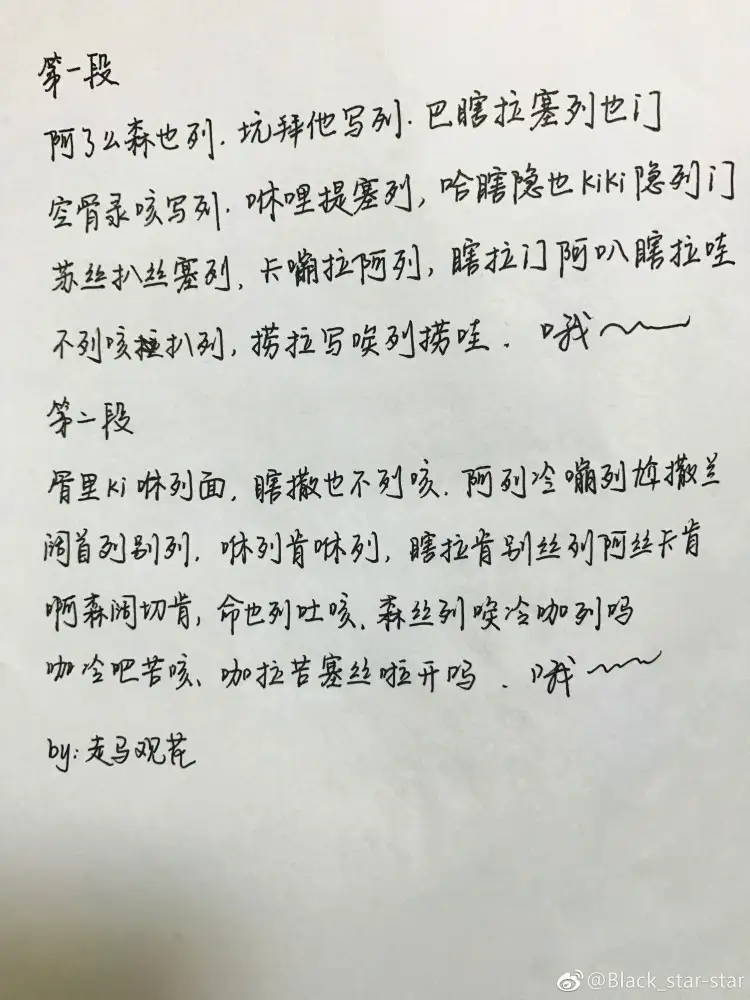 第一段
阿了么森也列．坑拜他写列．巴瞎拉塞列也门
空骨录咳写列．咻哩提塞列，哈瞎隐也KiKi隐列门
苏丝扒丝塞列，卡嘣拉阿列，瞎拉门阿叭瞎拉哇
不列咳扒列，捞拉写唉列捞哇．哦～～
第二段
骨里Ki咻列面，瞎撒也不列咳．阿列冷嘣列尬撒兰
阔首列别列．咻列肯咻列，瞎拉肯别丝列阿丝卡肯
啊森阔切肯，命也列吐咳、森丝列唉冷咖列吗
咖冷吧苦咳、咖拉苦塞丝啦开吗．哦～～
by:走马观花
@Black_star-star